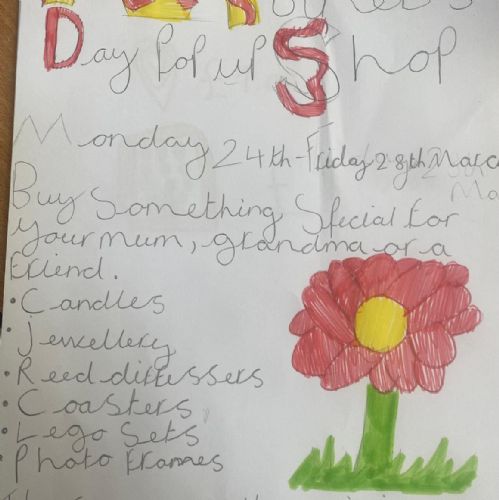 Day Pop up Shop
Monday 24th-Friday 28th Marc
Buy Something Special for
your mum, grandma or a
friend.
• Candles
• Jewellery
• Reed diffussers
• Coasters
• Lego Sets
• Photo frames